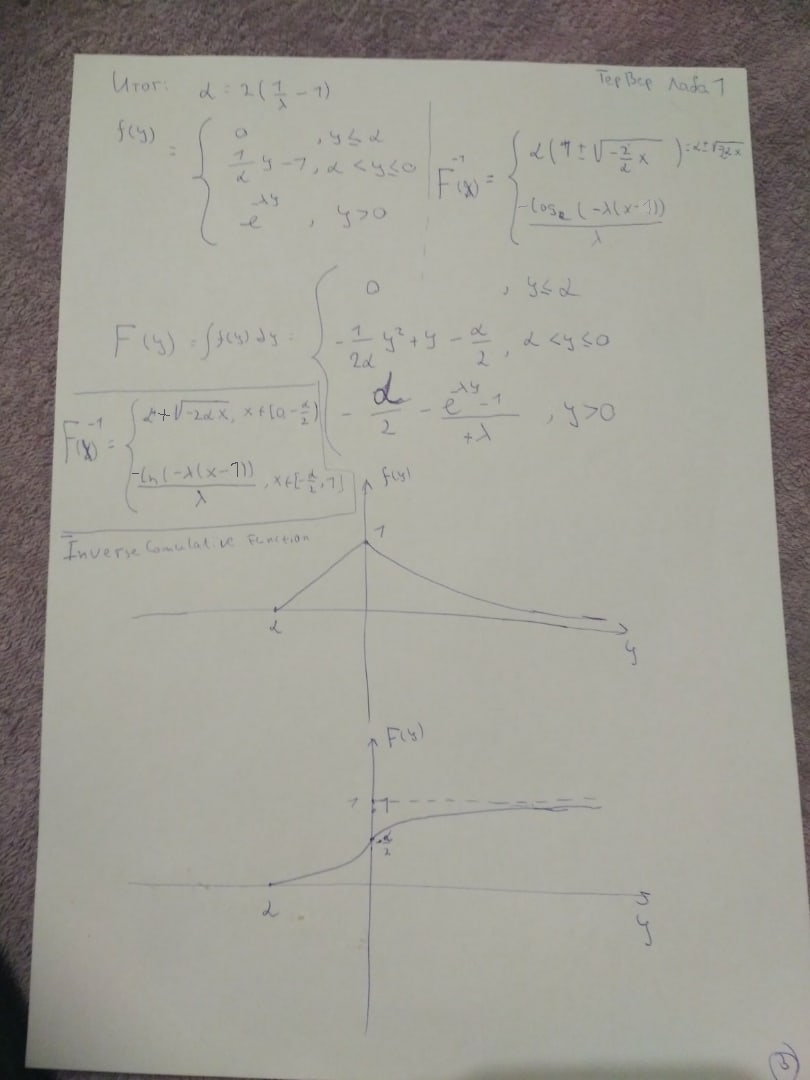 Итог: α = 2(1/λ - 1)
ТерВер Лаба 1
f(y) = { 0 , y ≤ α
1/α y - 1, α < y ≤ 0
e^-λy , y > 0
F^-1(x) = { α(1 ± √(-2/α x)) = α ± √(-2αx)
-log_e(-λ(x-1)) / λ
F(y) = ∫f(y)dy = { 0 , y ≤ α
-1/2α y² + y - α/2 , α < y ≤ 0
-α/2 - (e^-λy - 1)/+λ , y > 0
F^-1(x) = { α + √(-2αx), x ∈ [0, -α/2)
-ln(-λ(x-1))/λ , x ∈ [-α/2, 1]
Inverse Comulative Function
f(y)
1
α
y
F(y)
1
1
-α/2
α
y
3